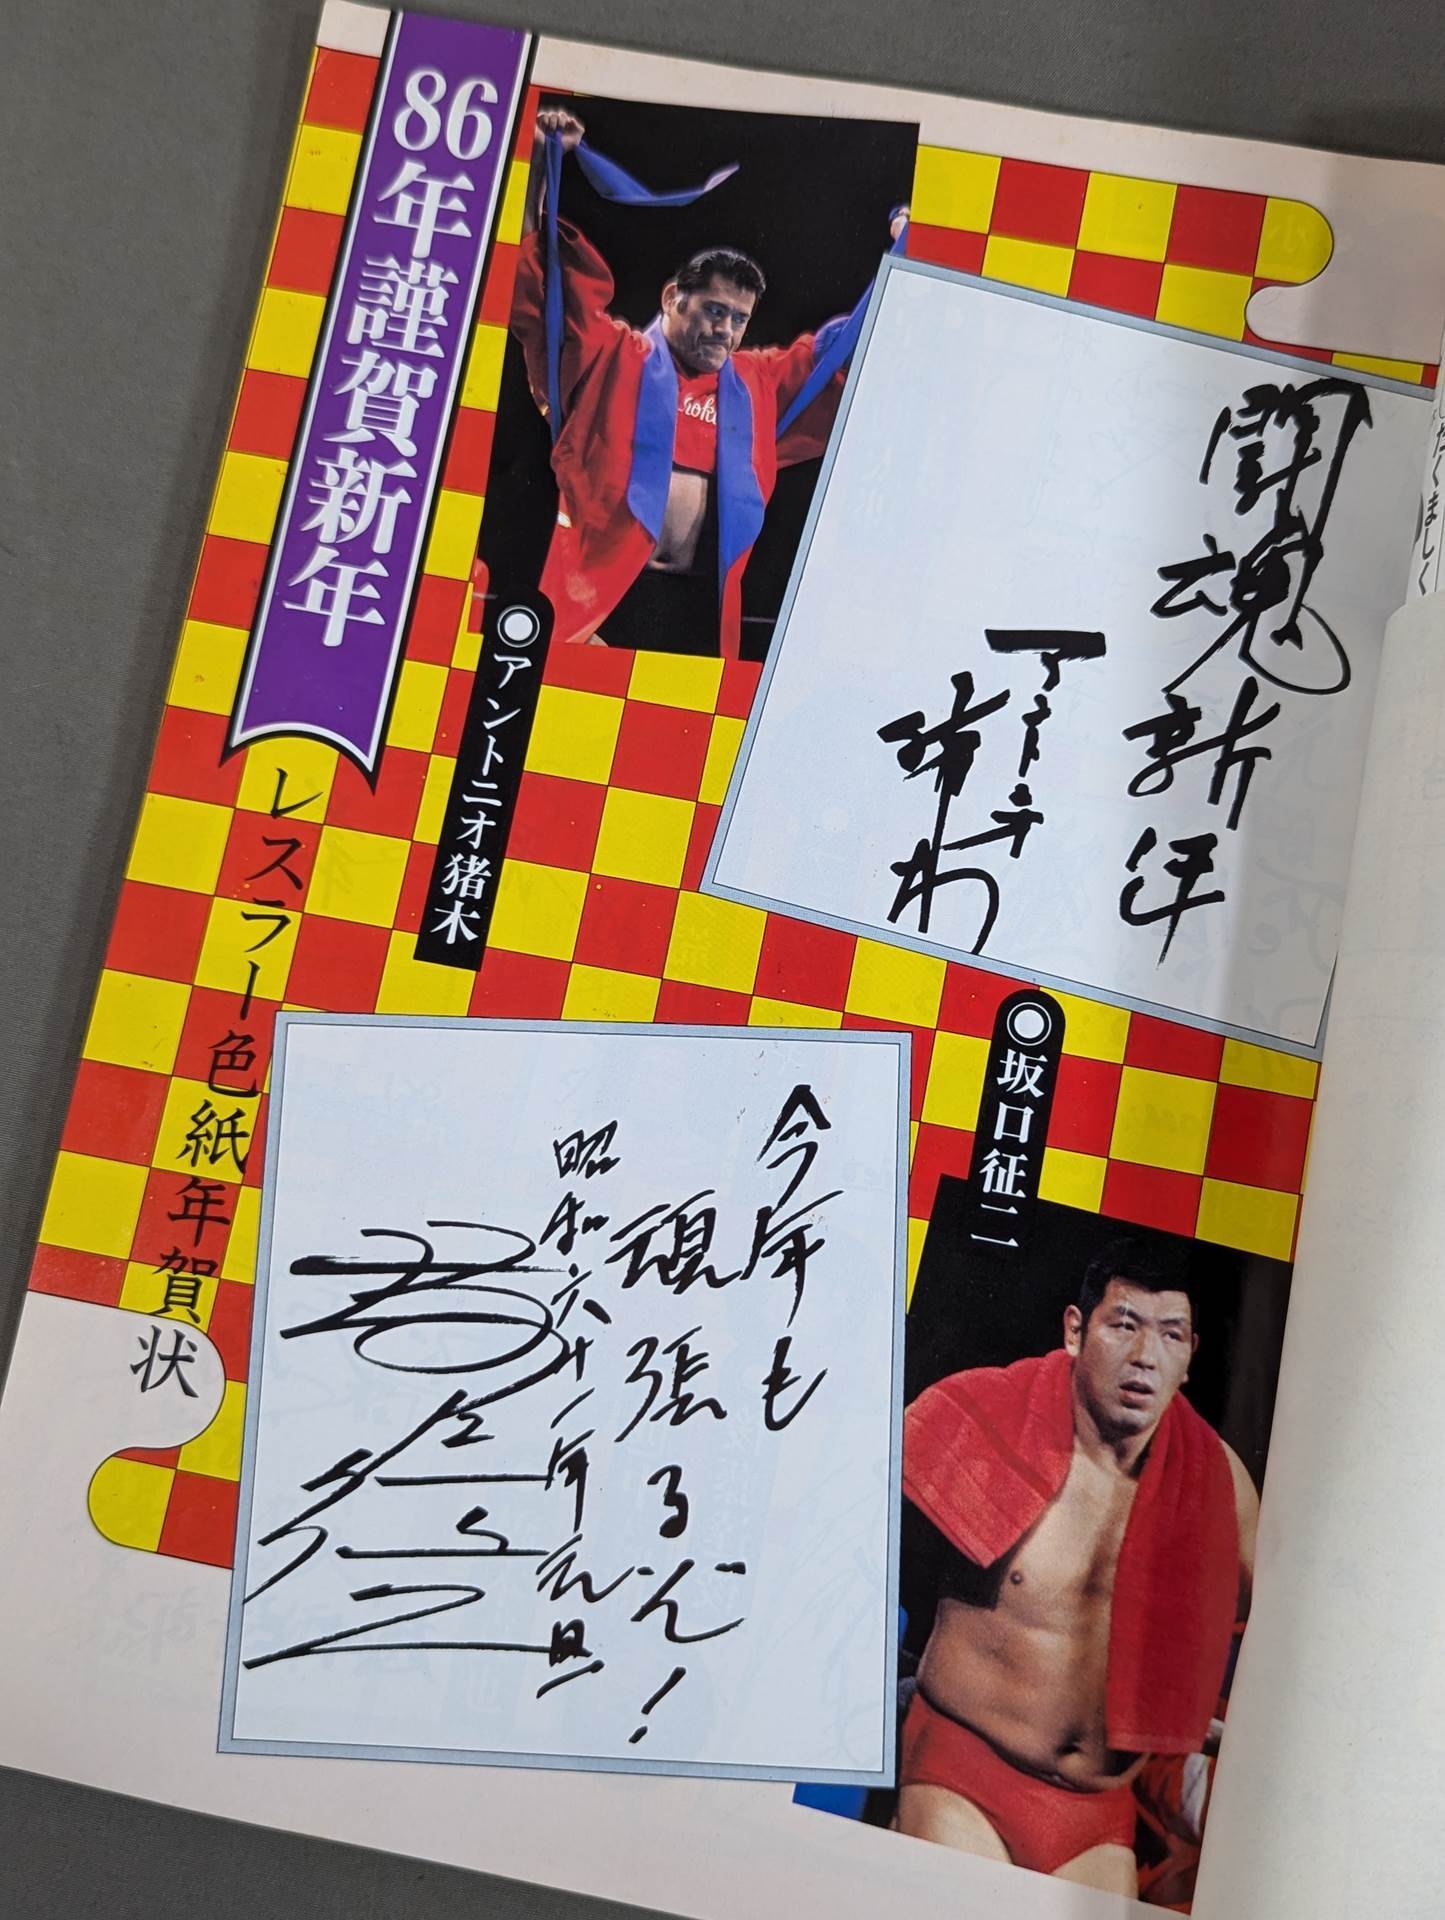 86年謹賀新年
レスラー色紙年賀状
◉アントニオ猪木
闘魂新年
アントニオ
猪木
◉坂口征二
今年も
頑張るぞ!
昭和六十一年元旦
坂口征二